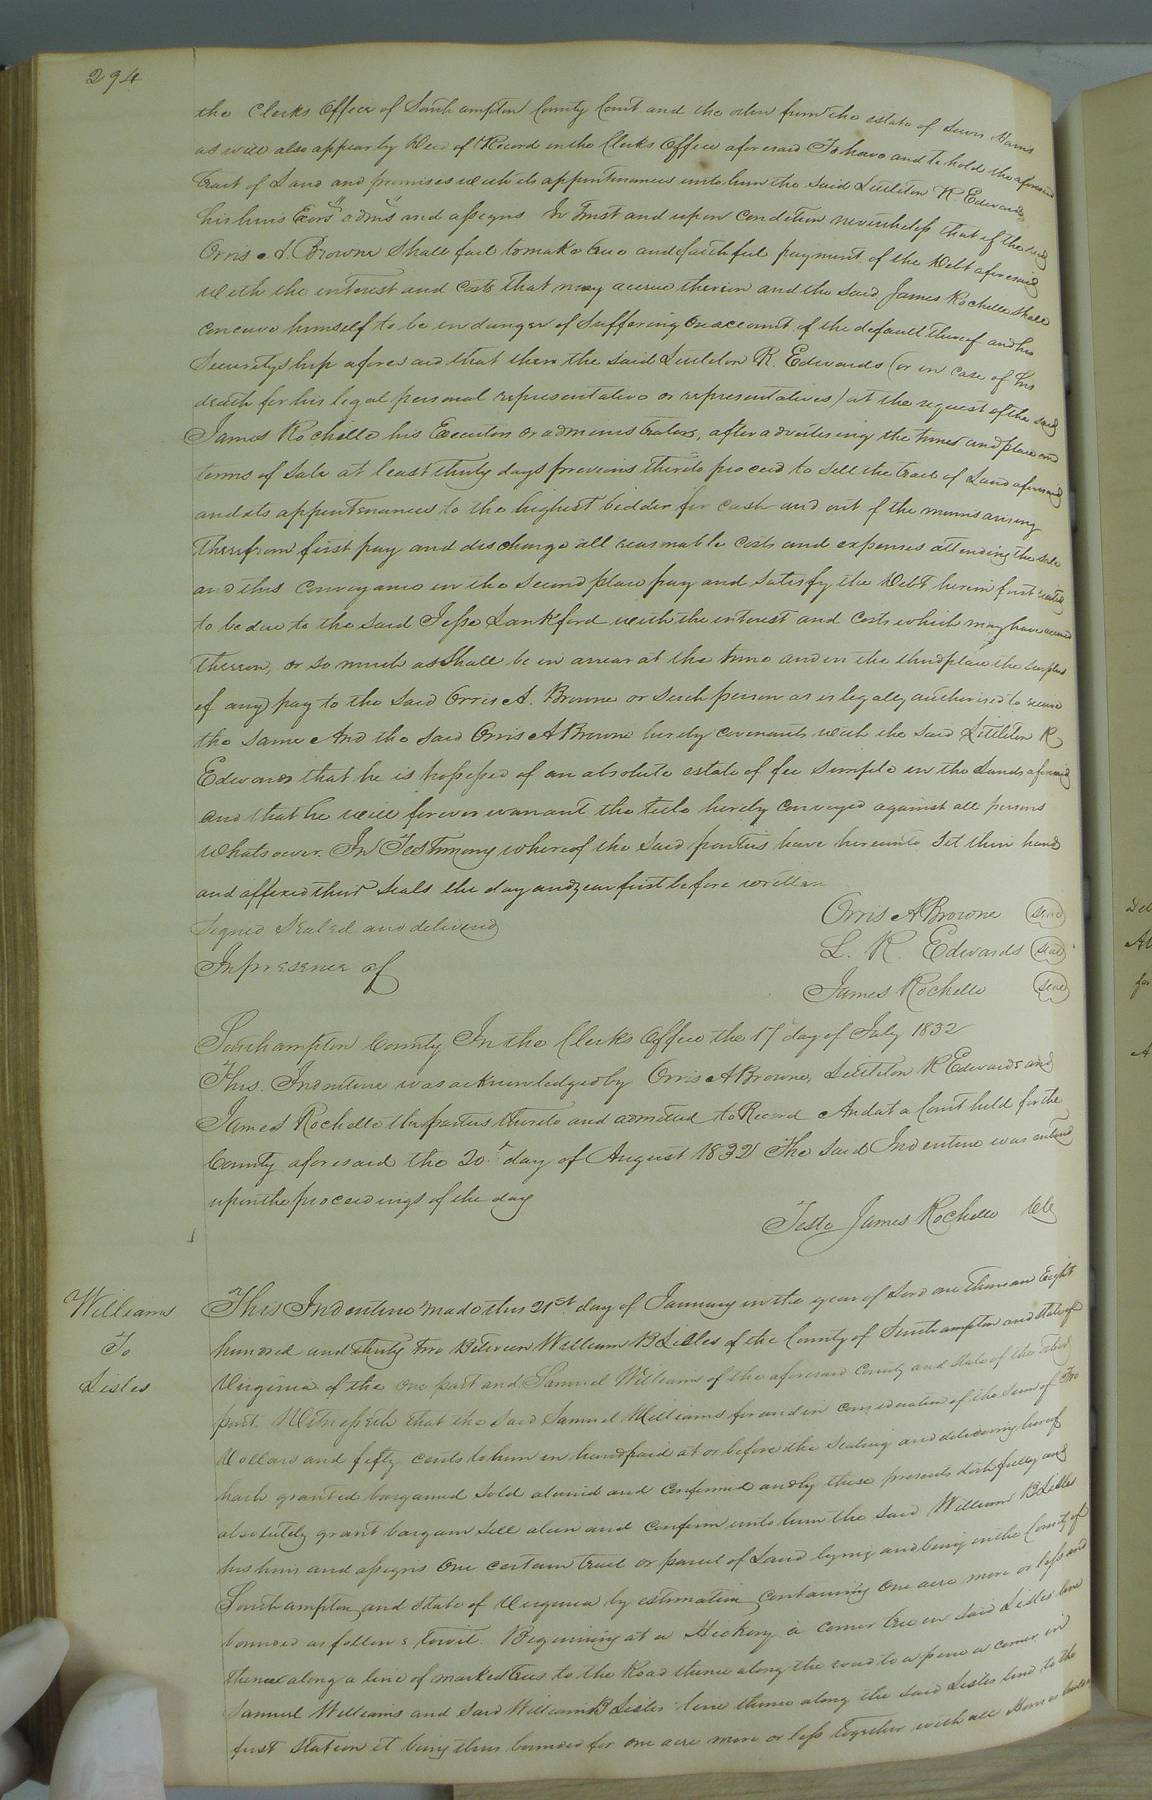 294
the Clerks Office of Southampton County Court and the other from the estate of Lewis Harris
as will also appear by Deed of Record in the Clerks Office aforesaid To have and to hold the aforesaid
tract of Land and premises with its appurtenances unto him the said Littleton R. Edwards
his heirs Exors admrs and assigns In Trust and upon condition nevertheless that if the said
Orris A. Browne Shall fail to make true and faithful payment of the Debt aforesaid
with the interest and costs that may accrue thereon and the said James Rochelle shall
conceive himself to be in danger of Suffering on account of the default thereof and his
Securityship aforesaid that then the said Littleton R. Edwards (or in case of his
death for his legal personal representative or representatives) at the request of the said
James Rochelle his Executors or administrators, after advertising the time and place and
terms of Sale at least thirty days previous thereto proceed to sell the tract of Land aforesaid
and its appurtenances to the highest bidder for cash and out of the monies arising
therefrom first pay and discharge all reasonable costs and expenses attending the sale
and this conveyance in the second place pay and satisfy the Debt herein first recited
to be due to the said Jesse Lankford with the interest and costs which may have accrued
thereon, or so much as Shall be in arrear at the time and in the third place the surplus
if any) pay to the said Orris A. Browne or such person as is legally authorised to receive
the same And the said Orris A Browne hereby covenants with the said Littleton R
Edwards that he is possessed of an absolute estate of fee simple in the Lands aforesaid
and that he will forever warrant the title hereby conveyed against all persons
whatsoever. In Testimony whereof the said parties have hereunto Set their hands
and affixed their Seals the day and year first before written
Signed Sealed and delivered
In presence of
Orris A Browne Seal
L. R. Edwards Seal
James Rochelle Seal
Southampton County In the Clerks Office the 17 day of July 1832
This Indenture was acknowledged by Orris A Browne, Littleton R Edwards and
James Rochelle the parties thereto and admitted to Record And at a Court held for the
County aforesaid the 20th day of August 1832 The said Indenture was entered
upon the proceedings of the day
Teste James Rochelle Clk
Williams
To
Lisles
This Indenture made this 21st day of January in the year of Lord one thousan Eight
hundred and thirty two Between William B Lisles of the County of Southampton and state of
Virginia of the one part and Samuel Williams of the aforesaid County and state of the other
part. Witnesseth that the said Samuel Williams for and in consideration of the sum of Two
Dollars and fifty cents to him in hand paid at or before the Sealing and delivering hereof
hath granted bargained sold aliened and confirmed and by these presents doth fully and
absolutely grant bargain sell alien and confirm unto him the said William B Lisles
his heirs and assigns One certain tract or parcel of Land lying and being in the County of
Southampton and state of Virginia by estimation containing One acre more or less and
bounded as follows towit. Beginning at a Hickory a corner tree in said Lisles line
thence along a line of marked trees to the Road thence along the road to a pine a corner in
Samuel Williams and said William B Lisles line thence along the said Lisles line to the
first Station it being thus bounded for one acre more or less together with all